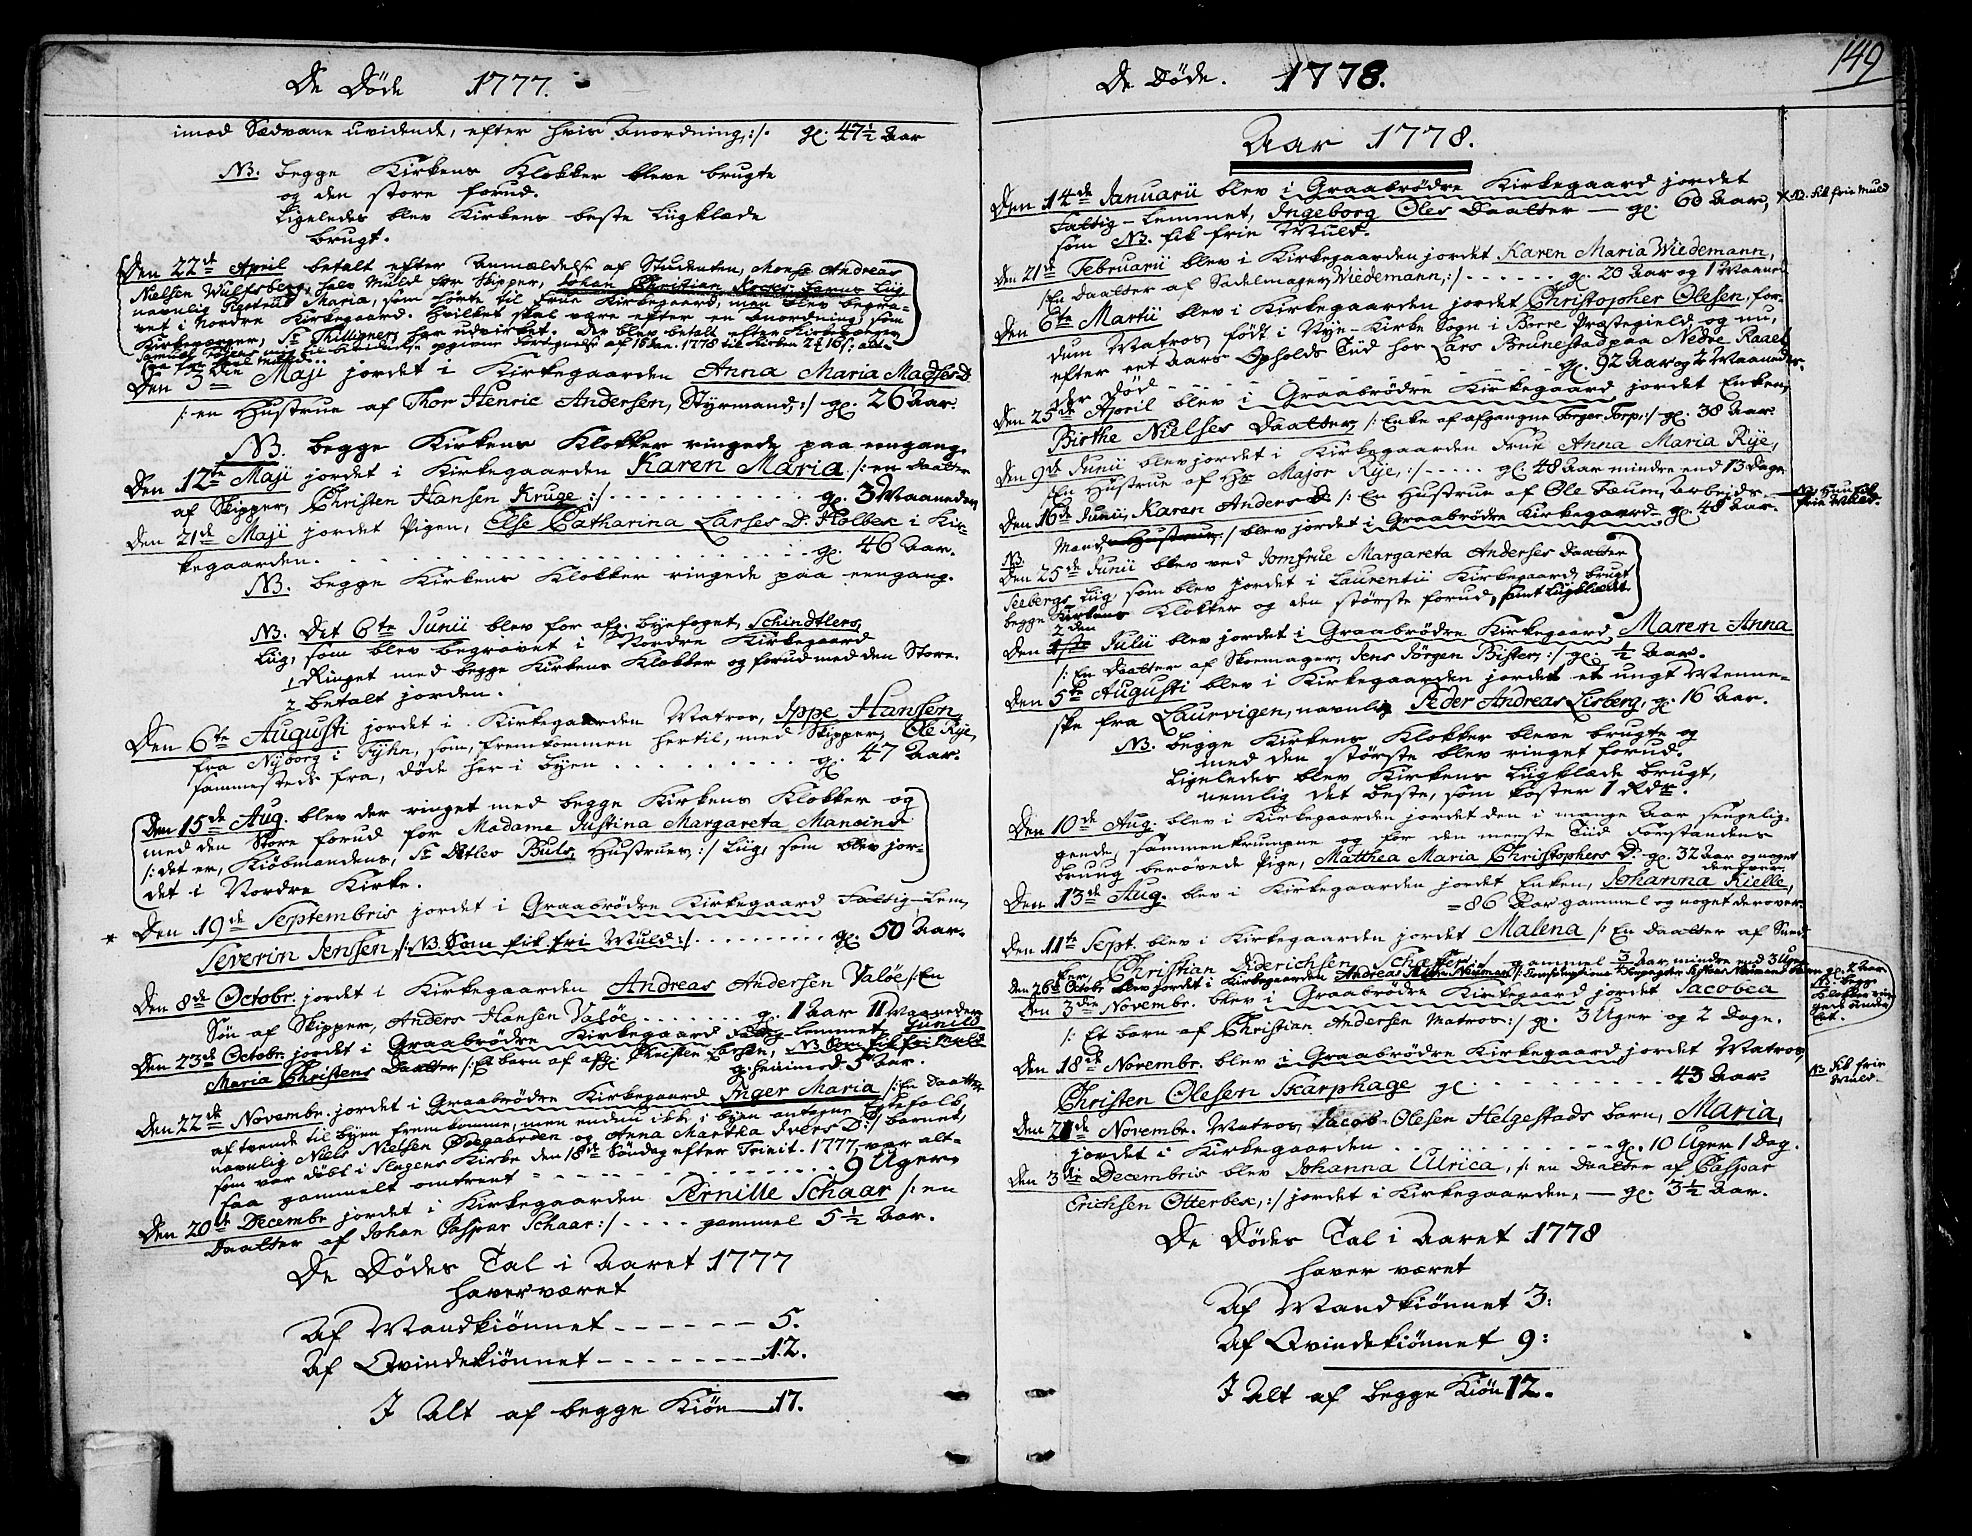 De Döde 1777.
imod Sædvane uvidende, efter hvis Anordning :/. gl. 47 1/2 Aar
NB. begge Kirkens Klokker bleve brugte
og den store forud.
Ligeledes blev Kirkens beste Liigklæde
brugt.
Den 22de April betalt efter Anmældelse af Studenten, Monsr Andreas
Nielsen Wulfsberg, halv Muld for Skipper, Johan Christian Liig
navnlig Maria, som hörte til Frue Kirkegaard, men blev begra-
vet i Nordre Kirkegaard. Hvilket skal være efter en Anordning, som
Kirkeværger, Sr Thilligner, har udvirket.
Den 5te Maji jordet i Kirkegaarden Anna Maria Madses D.
/: en Hustrue af Thor Henric Andersen, Styrmand, :/ gl. 26 Aar.
NB. begge Kirkens Klokker ringede paa eengang.
Den 12te Maji jordet i Kirkegaarden Karen Maria /: en Daatter
af Skipper, Christen Hansen Kruge :/ gl. 3 Maaneder
Den 21de Maji jordet Pigen, Else Catharina Larses D. Holbek i Kir-
kegaarden. gl. 46 Aar.
NB. begge Kirkens Klokker ringede paa eengang.
NB. Det 6te Junii blev for afg. byefoget, Schindtlers,
Liig, som blev begravet i Nordre Kirkegaard
1 Ringet med begge Kirkens Klokker og forud med den Store.
2 betalt jorden.
Den 6te Augusti jordet i Kirkegaarden Matros, Jppe Hansen,
fra Nyborg i Fyhn, som, fremkommen hertil, med Skipper, Ole Rije,
sammesteds fra, döde her i byen gl. 47 Aar.
Den 15de Aug. blev der ringet med begge Kirkens Klokker og
med den Store forud for Madame Justina Margareta Mansind
/: det er, Kiöbmandens, Sr Ditlev Buls, Hustrues, :/ Liig, som blev jor-
det i Nordre Kirke.
* Den 19de Septembris jordet i Graabrödre Kirkegaard Fattig-Lem,
Severin Jenssen /: NB. Som fik fri Muld :/ gl. 50 Aar.
Den 8de Octobr. jordet i Kirkegaarden Andreas Andersen Valöe /: En
Sön af Skipper, Anders Hansen Valöe g. 1 Aar 11 Maaneder
Den 23de Octobr. jordet i Graabrödre Kirkegaard Lemmet, Gunild
Maria Christens Daatter /: Et barn af afg. Christen Larsen, NB. Som fik fri Muld
5 Aar.
Den 22de Novembr. jordet i Graabrödre Kirkegaard Inger Maria /: En Daatter
af tvende til byen fremkomne, men endnu ikke i byen antagne Ægtefolk,
navnlig Niels Nielsen Ödegaarden og Anna Martha Ivers D. :/ barnet,
som var döbt i Slagens Kirke den 18de Söndag efter Trinit. 1777, var alt-
saa gammelt omtrent 9 Uger.
Den 20de Decembr. jordet i Kirkegaarden Pernille Schaar /: en
Daatter af Johan Caspar Schaar :/ gammel 5 1/2 Aar.
De Dödes Tal i Aaret 1777
haver været
Af Mandkiönnet 5.
Af Qvindekiönnet 12.
I Alt af begge Kiön 17.
De Döde. 1778.
149
Aar 1778.
Den 14de Januarii blev i Graabrödre Kirkegaard jordet
Fattig-Lemmet, Ingeborg Oles Daatter gl. 60 Aar,
som NB. fik frie Muld.
* NB. fik frie Muld
Den 21de Februarii blev i Kirkegaarden jordet Karen Maria Wiedemann,
/: En Daatter af Sadelmager, Wiedemann, :/ g. 20 Aar og 1 Maaned
Den 6te Martii blev i Kirkegaarden jordet Christopher Olesen, for-
dum Matros, födt i Nye-Kirke Sogn i Borre Præstegield, og nu,
efter eet Aars Opholds Tiid hos Lars Brunestad paa Nedre Raael
der död gl. 92 Aar og 2 Maaneder.
Den 25de April blev i Graabrödre Kirkegaard jordet Enken,
Birthe Nielses Daatter, /: Enke af afgangne Torger Torp, :/ gl. 38 Aar.
Den 9de Junii blev jordet i Kirkegaarden Frue Anna Maria Rije,
/: En Hustrue af Hr Major Rije, :/ gl. 48 Aar mindre end 13 Dage
Den 16de Junii, Karen Anders D. /: En Hustrue af Ole Faeum, Arbeids-
Mand, Hustrue, :/ blev jordet i Graabrödre Kirkegaard gl. 48 Aar.
NB. Hun fik
frie Muld.
NB.
Den 25de Junii blev ved Jomfrue Margareta Anderses Daatter
Seebergs Liig, som blev jordet i Laurentii Kirkegaard, brugt
begge Kirkens Klokker og den störste forud, samt Liigklædet.
2den
Den Julii blev jordet i Graabrödre Kirkegaard Maren Anna
/: En Daatter af Skoemager, Jens Jörgen Bister, :/ gl. 1/2 Aar.
Den 5te Augusti blev i Kirkegaarden jordet et ungt Menne-
ske fra Laurvigen, navnlig Peder Andreas Lisberg, gl. 16 Aar.
NB. begge Kirkens Klokker bleve brugte og
med den störste blev ringet forud.
Ligeledes blev Kirkens Liigklæde brugt,
nemlig det beste, som koster 1 Rdr.
Den 10de Aug. blev i Kirkegaarden jordet den i mange Aar sengelig-
gende, sammenkrumpne og for den meste Tiid Forstandens
bruug berövede Pige, Matthea Maria Christophers D. gl. 32 Aar og noget
derover.
Den 13de Aug. blev i Kirkegaarden jordet Enken, Johanna Kielle,
86 Aar gammel og noget derover.
Den 11te Sept. blev i Kirkegaarden jordet Malena /: En Daatter af Sned-
ker, Christian Diderichsen Schæfer :/ gammel 3/4 Aar mindre end 3 Uger
Den 26de Octobr. blev jordet i Kirkegaarden Andreas Neuman gl. 2 Aar
NB. begge
Klokker rin-
gede under
Eet.
Den 3die Novembr. blev i Graabrödre Kirkegaard jordet Jacobea
/: Et barn af Christian Andersen Matros :/ gl. 3 Uger og 2 Dage.
Den 18de Novembr. blev i Graabrödre Kirkegaard jordet Matros,
Christen Olesen Skarphage gl. 43 Aar.
NB. fik frie
Muld.
Den 21de Novembr. Matros, Jacob Olesen Helgestads barn, Maria,
jordet i Kirkegaarden g. 10 Uger 1 Dag.
Den 3die Decembris blev Johanna Ulrica, /: en Daatter af Caspar
Erichsen Otterbek, :/ jordet i Kirkegaarden, gl. 3 1/2 Aar.
De Dödes Tal i Aaret 1778
haver været
Af Mandkiönnet 3:
Af Qvindekiönnet 9:
I Alt af begge Kiön 12.